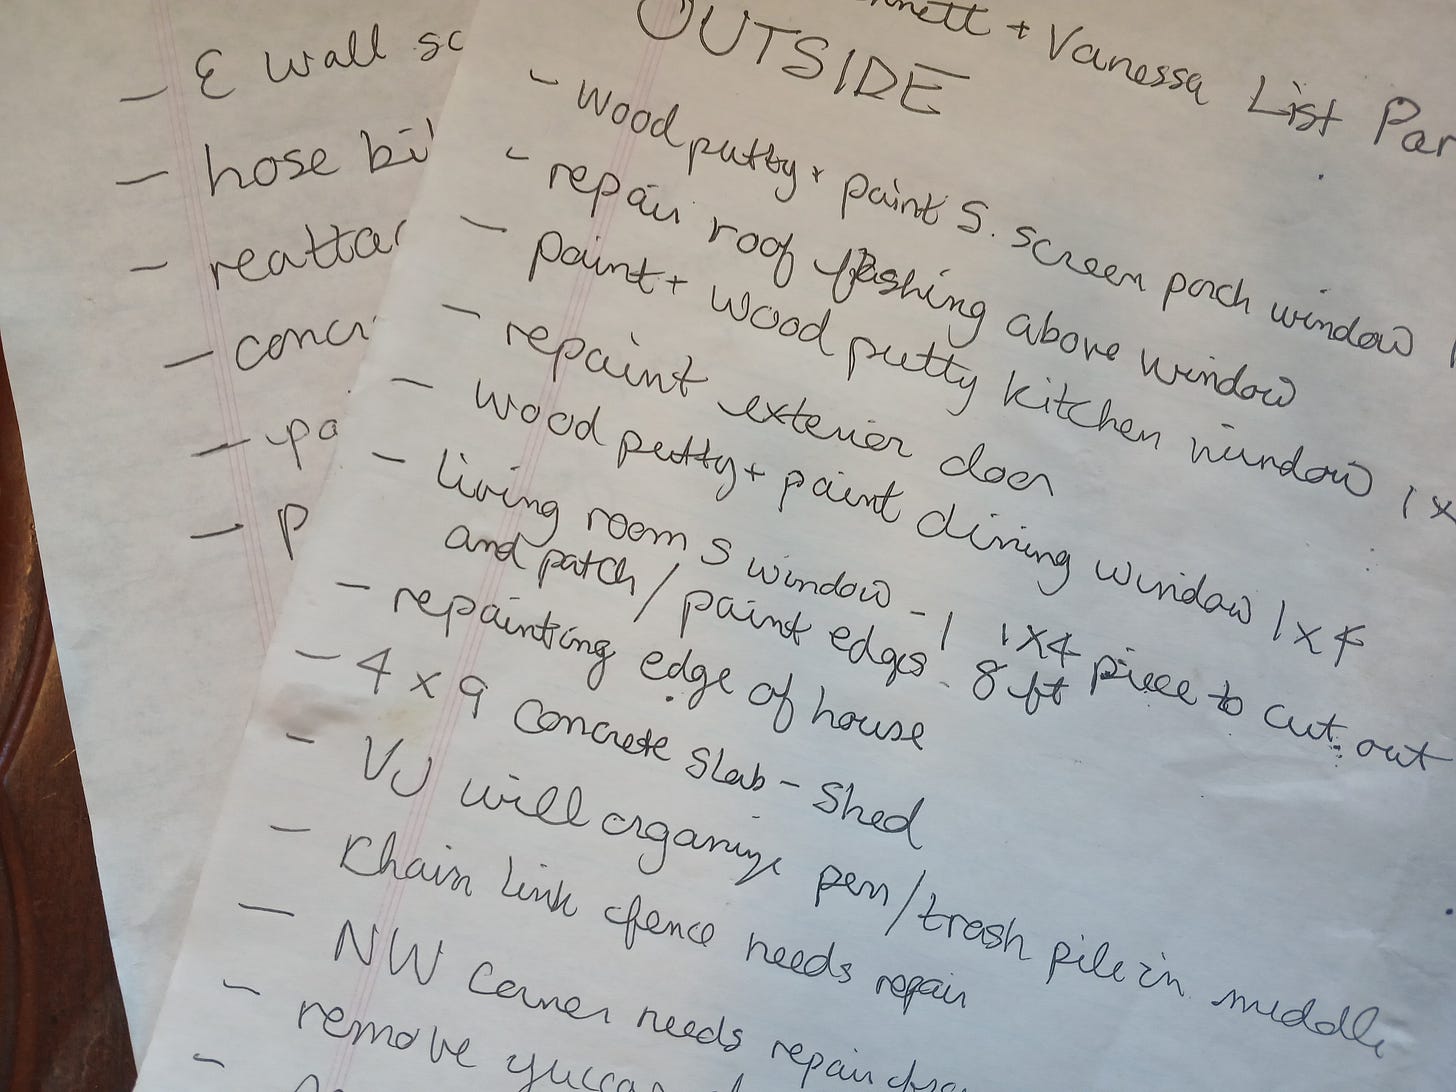 E wall sc
- hose bi
- reatta
- conc
- pa
- P
nnett + Vanessa List Par
OUTSIDE
- wood putty + paint S. screen porch window
- repair roof flashing above window
- paint + wood putty kitchen window 1x
- repaint exterior door
- wood putty + paint dining window 1x4
- living room S window - 1 1x4 piece to cut out
and patch / paint edges. 8 ft
- repainting edge of house
- 4 x 9 concrete slab - shed
- VJ will organize pen/trash pile in middle
- Chain link fence needs repair
- NW corner needs repair
- remove yucca